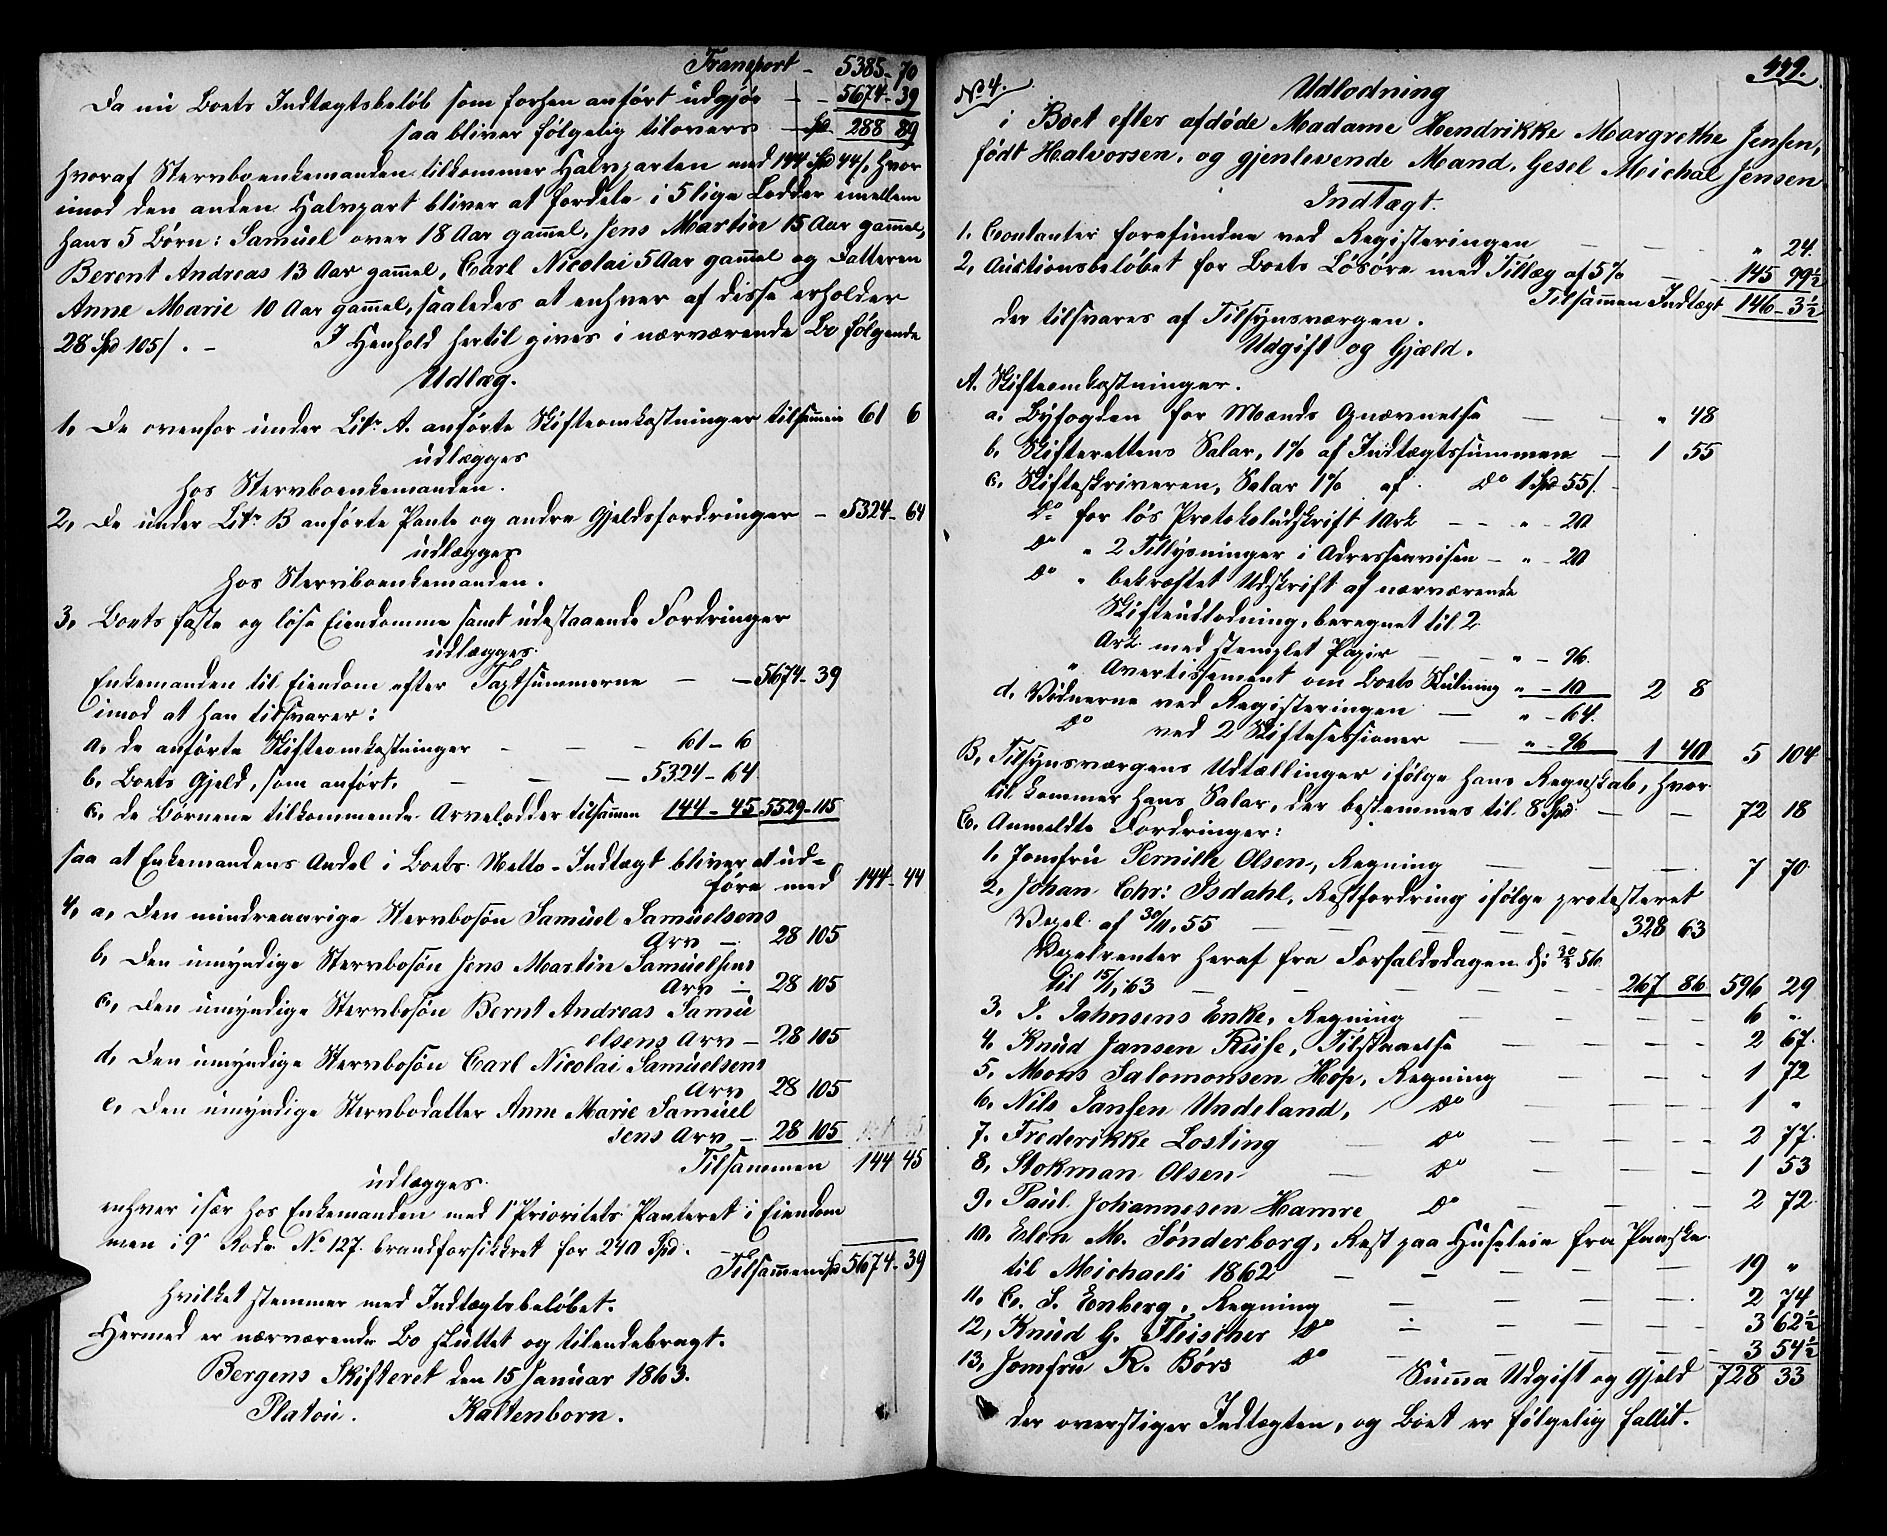 Transport - 5385-70
Da nu Boets Indtægtsbeløb som forhen anført udgjør - - 5674-39
saa bliver følgelig tilovers - Spd. 288 89
hvoraf Stervboenkemanden tilkommer Halvparten med 144 Spd 44/, hvor
imod den anden Halvpart bliver at fordele i 5 lige Lodder imellem
hans 5 Børn: Samuel over 18 Aar gammel, Jens Martin 15 Aar gammel,
Berent Andreas 13 Aar gammel, Carl Nicolai 5 Aar gammel og Datteren
Anne Marie 10 Aar gammel, saaledes at enhver af disse erholder
28 Spd 105/. - I Henhold hertil gives i nærværende Bo følgende
Udlæg.
1, De ovenfor under Litr A. anførte Skifteomkostninger tilsammen 61 6
udlægges
hos Stervboenkemanden.
2, De under Litr B anførte Pante og andre Gjeldsfordringer - 5324-64
udlægges
hos Stervboenkemanden.
3, Boets faste og løse Eiendomme samt udestaaende Fordringer
udlægges
Enkemanden til Eiendom efter Taxtsummerne - - 5674-39
imod at han tilsvarer:
a, de anførte Skifteomkostninger - - - 61-6
b, Boets Gjeld, som anført. - - - 5324-64
c, de Børnene tilkommende Arvelodder tilsammen 144-45 5529-115
saa at Enkemandens Andel i Boets Netto-Indtægt bliver at ud-
føre med 144-44
4, a, Den mindreaarige Stervbosøn Samuel Samuelsens
Arv - 28 105
b, Den umyndige Stervbosøn Jens Martin Samuelsens
Arv - 28 105
c, Den umyndige Stervbosøn Bernt Andreas Samu
elsens Arv - 28 105
d, Den umyndige Stervbosøn Carl Nicolai Samuelsens
Arv 28 105
e, Den umyndige Stervbodatter Anne Marie Samuel
sens Arv - 28 105
Tilsammen 144 45
udlægges
enhver især hos Enkemanden med 1ste Prioritets Panteret i Eiendom
men i 9de Rode No 127. brandforsikkret for 240 Spd. -
Tilsammen Spd 5674-39
hvilket stemmer med Indtægtsbeløbet.
Hermed er nærværende Bo sluttet og tilendebragt.
Bergens Skifteret den 15 Januar 1863.
Platou. Kaltenborn.
449.
No 4.
Udlodning
i Boet efter afdøde Madame Hendrikke Margrethe Jensen,
født Halvorsen, og gjenlevende Mand, Gesel Michal Jensen
Indtægt.
1. Contanter forefundne ved Registeringen - - - " 24.
2, Auctionsbeløbet for Boets Løsøre med Tillæg af 5% - - 145 99½
Tilsammen Indtægt 146-3½
der tilsvares af Tilsynsværgen.
Udgift og Gjæld.
A. Skifteomkostninger.
a. Byfogden for Mænds Opnævnelse - - " 48
b, Skifterettens Salar, 1% af Indtægtssummen - 1 55
c, Skifteskriveren, Salar 1% af Do 1 Spd 55/.
Do for løs Protokoludskrift 1 Ark - - " - 20
Do " 2 Tillysninger i Adresseavisen - " - 20
Do " bekræftet Udskrift af nærværende
Skifteudlodning, beregnet til 2
Ark med stemplet Papir - - " - 96.
" Avertissement om Boets Slutning " - 10 2 8
d. Vidnerne ved Registeringen - " - 64.
Do ved 2 Skiftesessioner - " - 96 1 40 5 104
B, Tilsynsværgens Udtællinger ifølge hans Regnskab, hvor
til kommer hans Salar, der bestemmes til 8 Spd - - 72 18
C. Anmeldte Fordringer:
1, Jomfru Pernille Olsen, Regning - - - 7 70.
2, Johan Chr: Isdahl, Restfordring ifølge protesteret
Vexel af 30/11, 55 - - - - - 328 63
Vexelrenter heraf fra Forfaldsdagen d: 30/3 56
til 15/1, 63 - - - - - 267 86 596 29
3, J. Jahnsens Enke, Regning - - - - 6 "
4, Knud Jansen Ruse, Tilstaaelse - - - - 2 67.
5, Mons Salomonsen Hop, Regning - - - 1 72
6, Nils Jansen Undeland, Do - - - - 1 "
7. Frederikke Losting - Do - - - - 2 77.
8, Stokman Olsen - Do - - - - 1 53
9, Paul Johannesen Hamre Do - - - - 2 72.
10, Elen M. Sønderborg, Rest paa Husleie fra Paaske
til Michaeli 1862 - - - - - 19 "
11, C. S. Enberg, Regning - - - - 2 74
12, Knud G. Fleischer Do - - - - 3 62½
13, Jomfru R. Børs Do - - - - 3 54½
Summa Udgift og Gjeld 728 33
der overstiger Indtægten, og Boet er følgelig fallit.